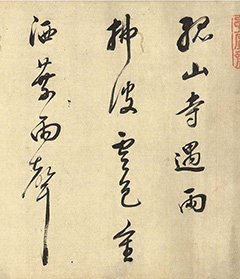 孤山寺遇雨
拂波雲色重
洒葉雨聲